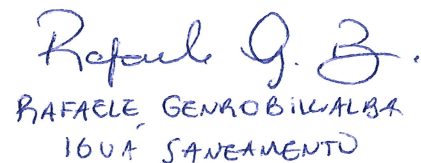 Rafaele G. B.
RAFAELE GENROBILLALBA
IGUÁ SANEAMENTO